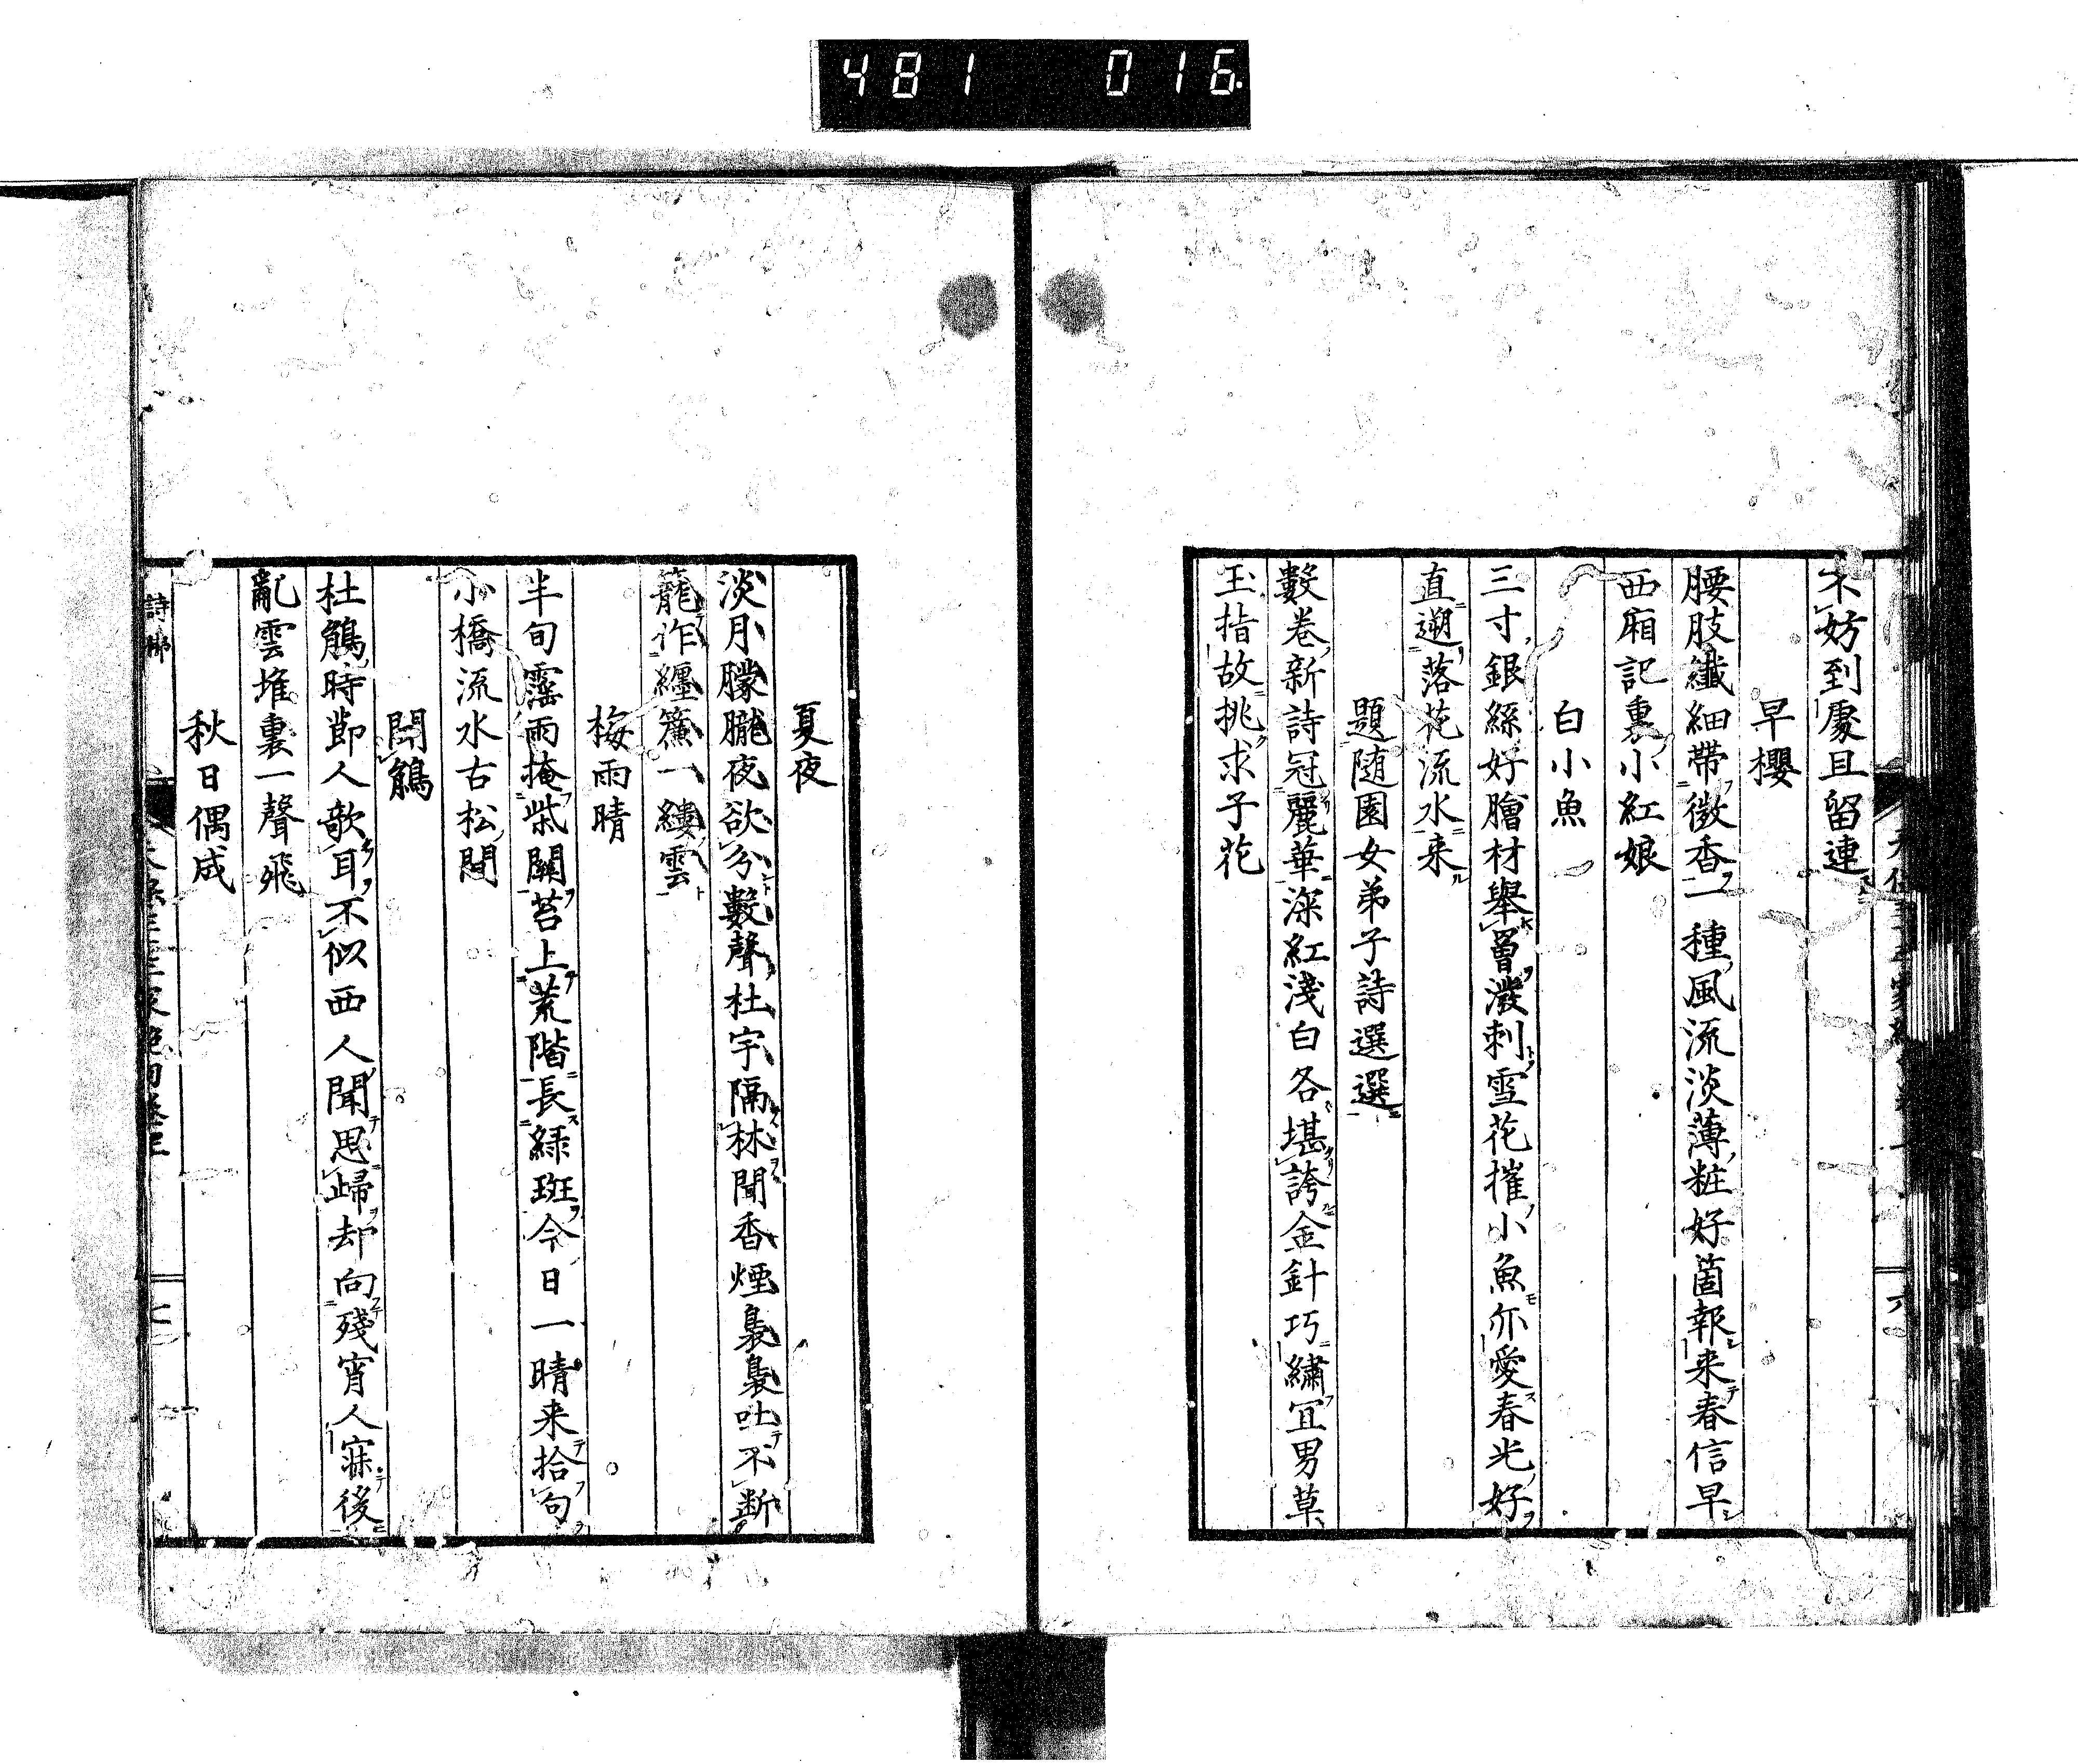 481 016
不妨到處且留連
早櫻
腰肢纖細帶微香一種風流淡薄粧好箇報来春信早
西廂記裏小紅娘
白小魚
三寸銀絲好膾材舉罾潑刺雪花摧小魚亦愛春光好
直遡落花流水来
題随園女弟子詩選選
數卷新詩冠麗華深紅淺白各堪誇金針巧繡冝男草
玉指故挑求子花
六
夏夜
淡月朦朧夜欲分數聲杜宇隔林聞香煙裊裊吐不断
籠作纏簾一縷雲
梅雨晴
半旬霪雨掩柴關苔上荒階長緑斑今日一晴来拾句
小橋流水古松間
聞鵑
杜鵑時節人歌耳不似西人聞思歸却向殘宵人寐後
亂雲堆裏一聲飛
秋日偶成